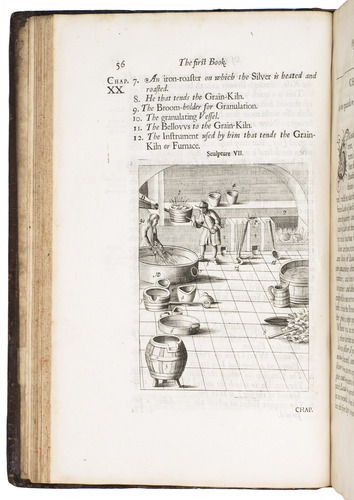 56 The first Book.
CHAP. 7. An iron-roaster on which the Silver is heated and
XX. roasted.
8. He that tends the Grain-Kiln.
9. The Broom-holder for Granulation.
10. The granulating Vessel.
11. The Bellovvs to the Grain-Kiln.
12. The Instrument used by him that tends the Grain-
Kiln or Furnace.
Sculpture VII.
CHAP.